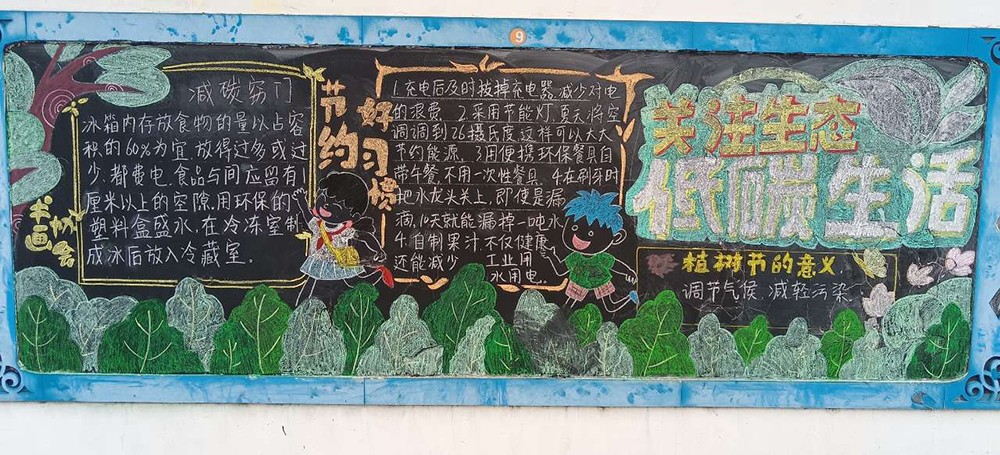 9
减碳窍门
冰箱内存放食物的量以占容
积的60%为宜.放得过多或过
少.都费电.食品与间应留有1
厘米以上的空隙.用环保的
塑料盒盛水.在冷冻室制
成冰后放入冷藏室.
书画
节约
好习惯
1.充电后及时拔掉充电器,减少对电
的浪费. 2.采用节能灯.夏天将空
调调到26摄氏度.这样可以大大
节约能源. 3.用便携环保餐具自
带午餐,不用一次性餐具. 4.在刷牙时
把水龙头关上,即使是漏
滴,10天就能漏掉一吨水
4.自制果汁不仅健康
还能减少 工业用
水用电.
关注生态
低碳生活
植树节的意义
调节气候.减轻污染